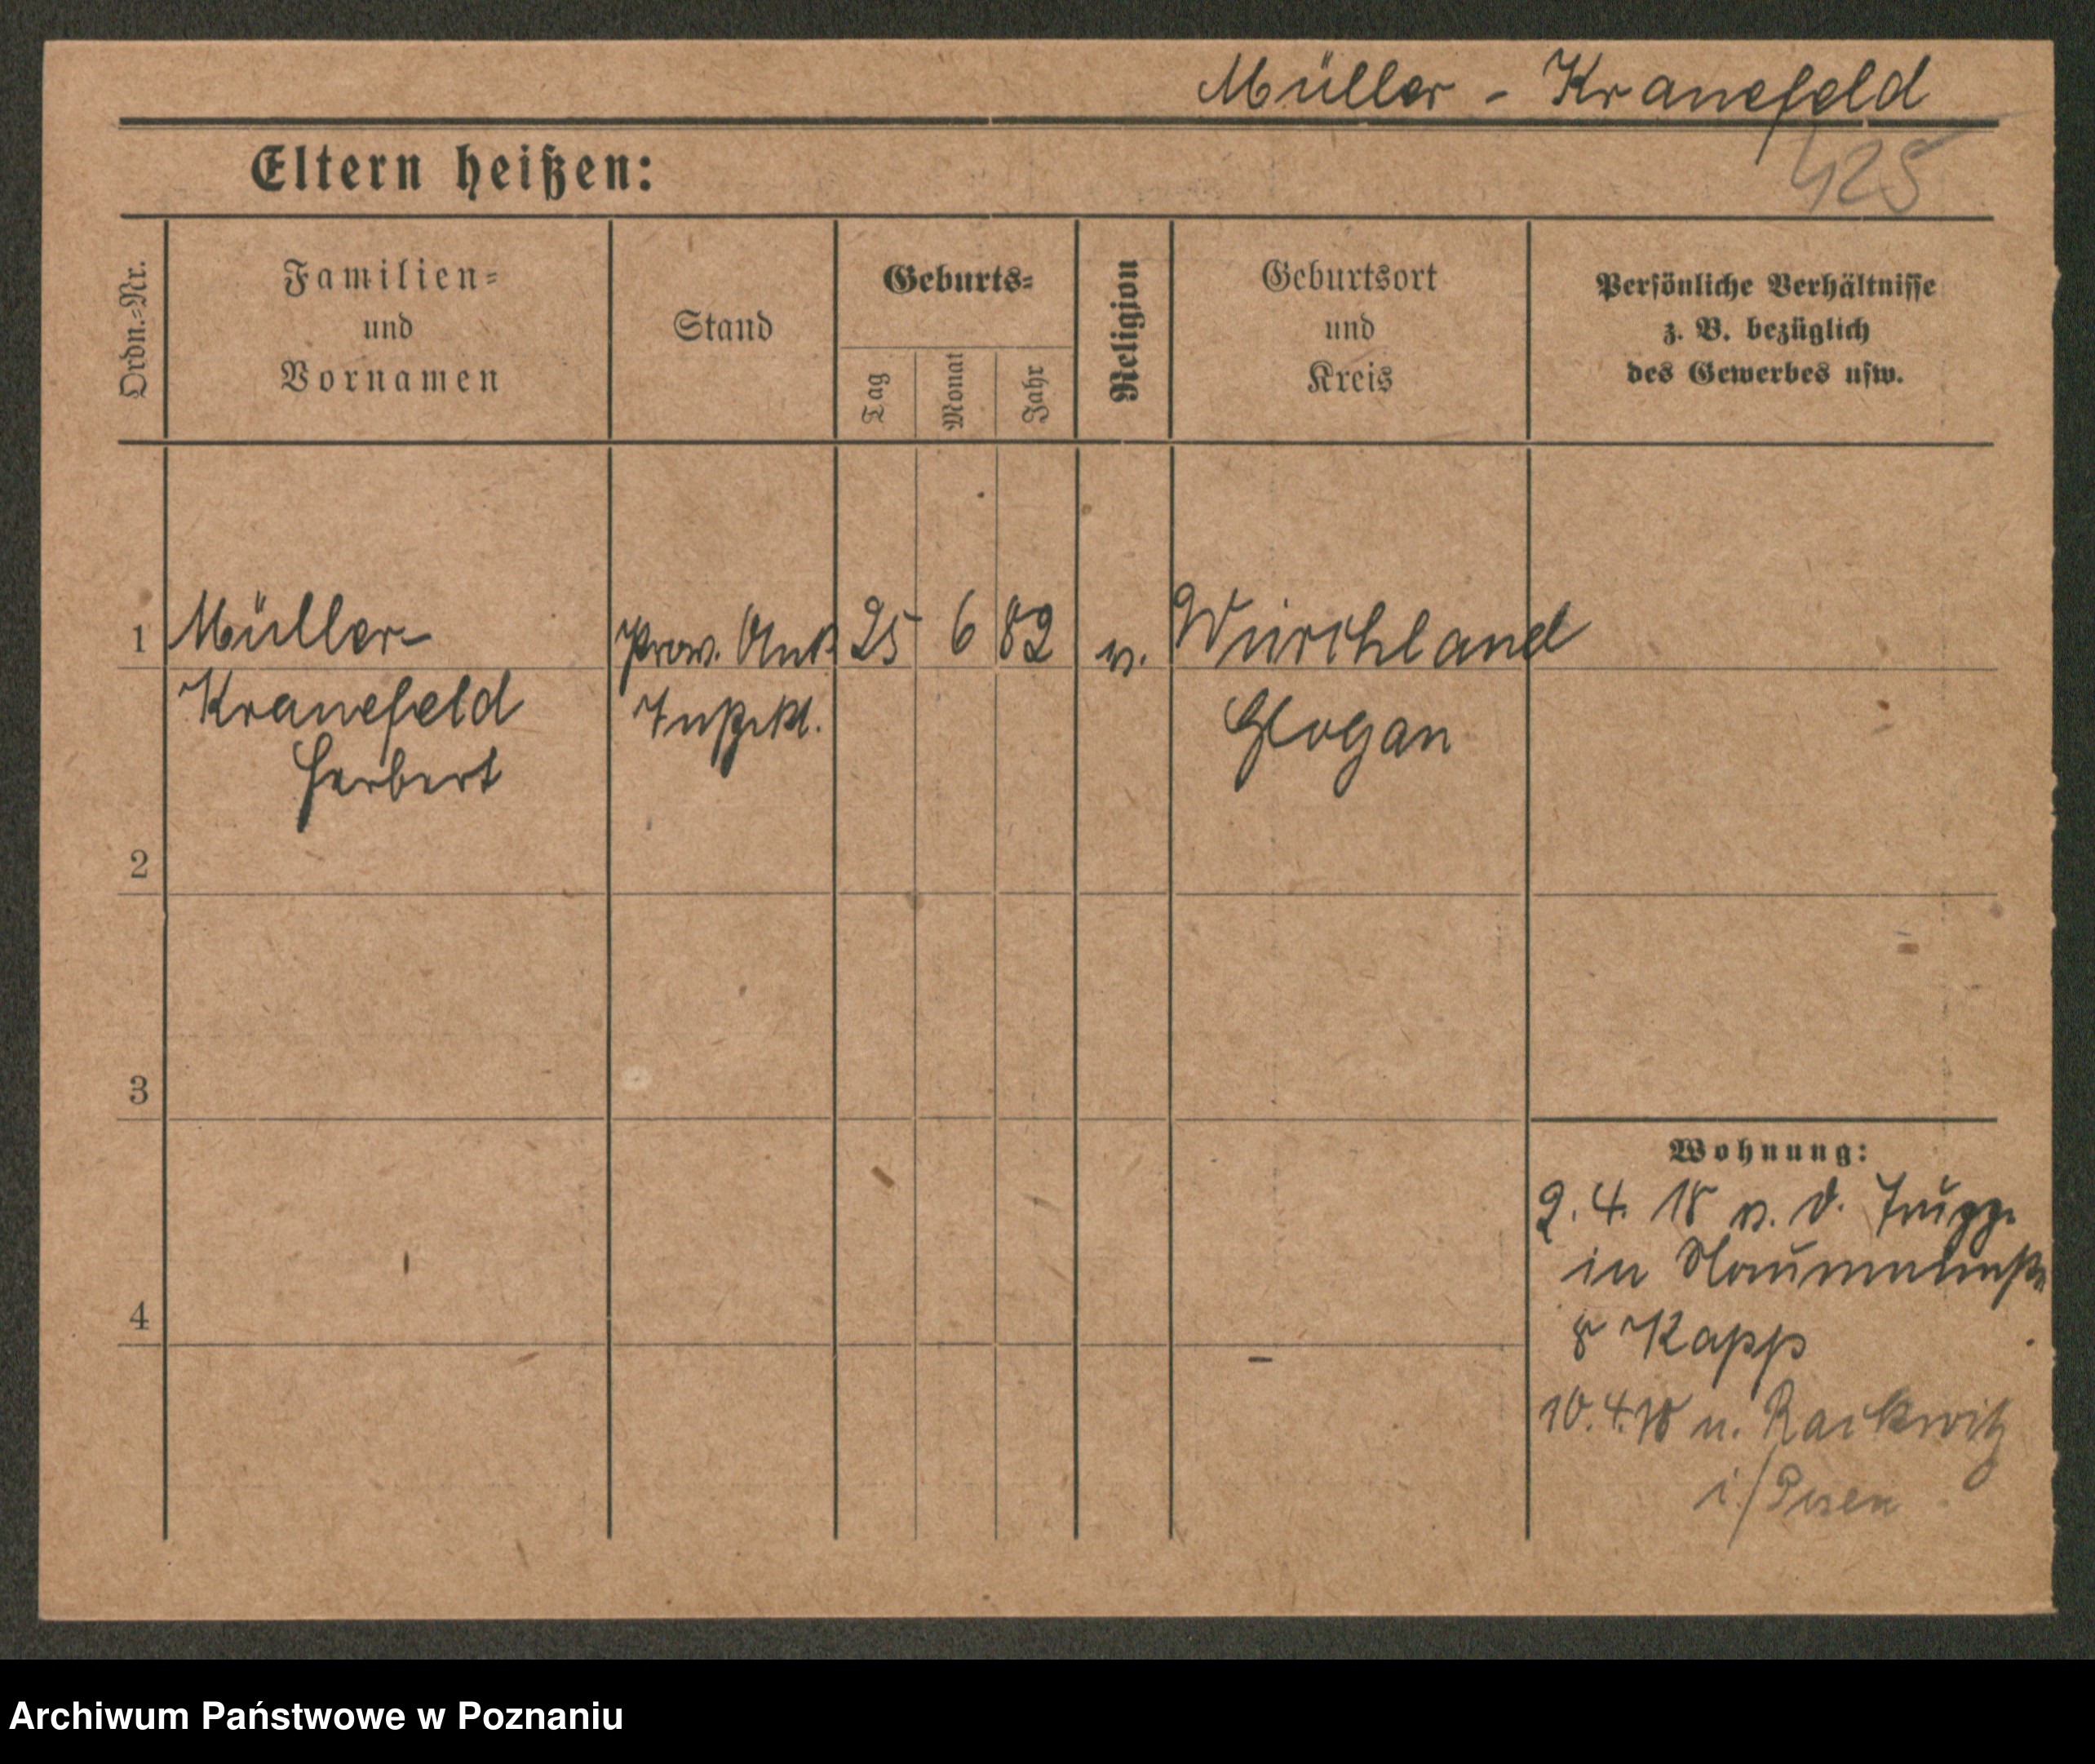 Müller - Kranefeld
425
Eltern heißen:
Ordn.-Nr.
Familien-
und
Vornamen
Stand
Geburts-
Tag
Monat
Jahr
Religion
Geburtsort
und
Kreis
Persönliche Verhältnisse
z. B. bezüglich
des Gewerbes usw.
1 Müller- Prov. Amts 25 6 82 ev. Würchland
Kranefeld Inspekt. Glogau
Herbert
2
3
4
Wohnung:
2. 4. 18 v. d. Truppe
in Naumannstr.
8 Kapp
10.4.18 n. Rackwitz
i/Posen
Archiwum Państwowe w Poznaniu